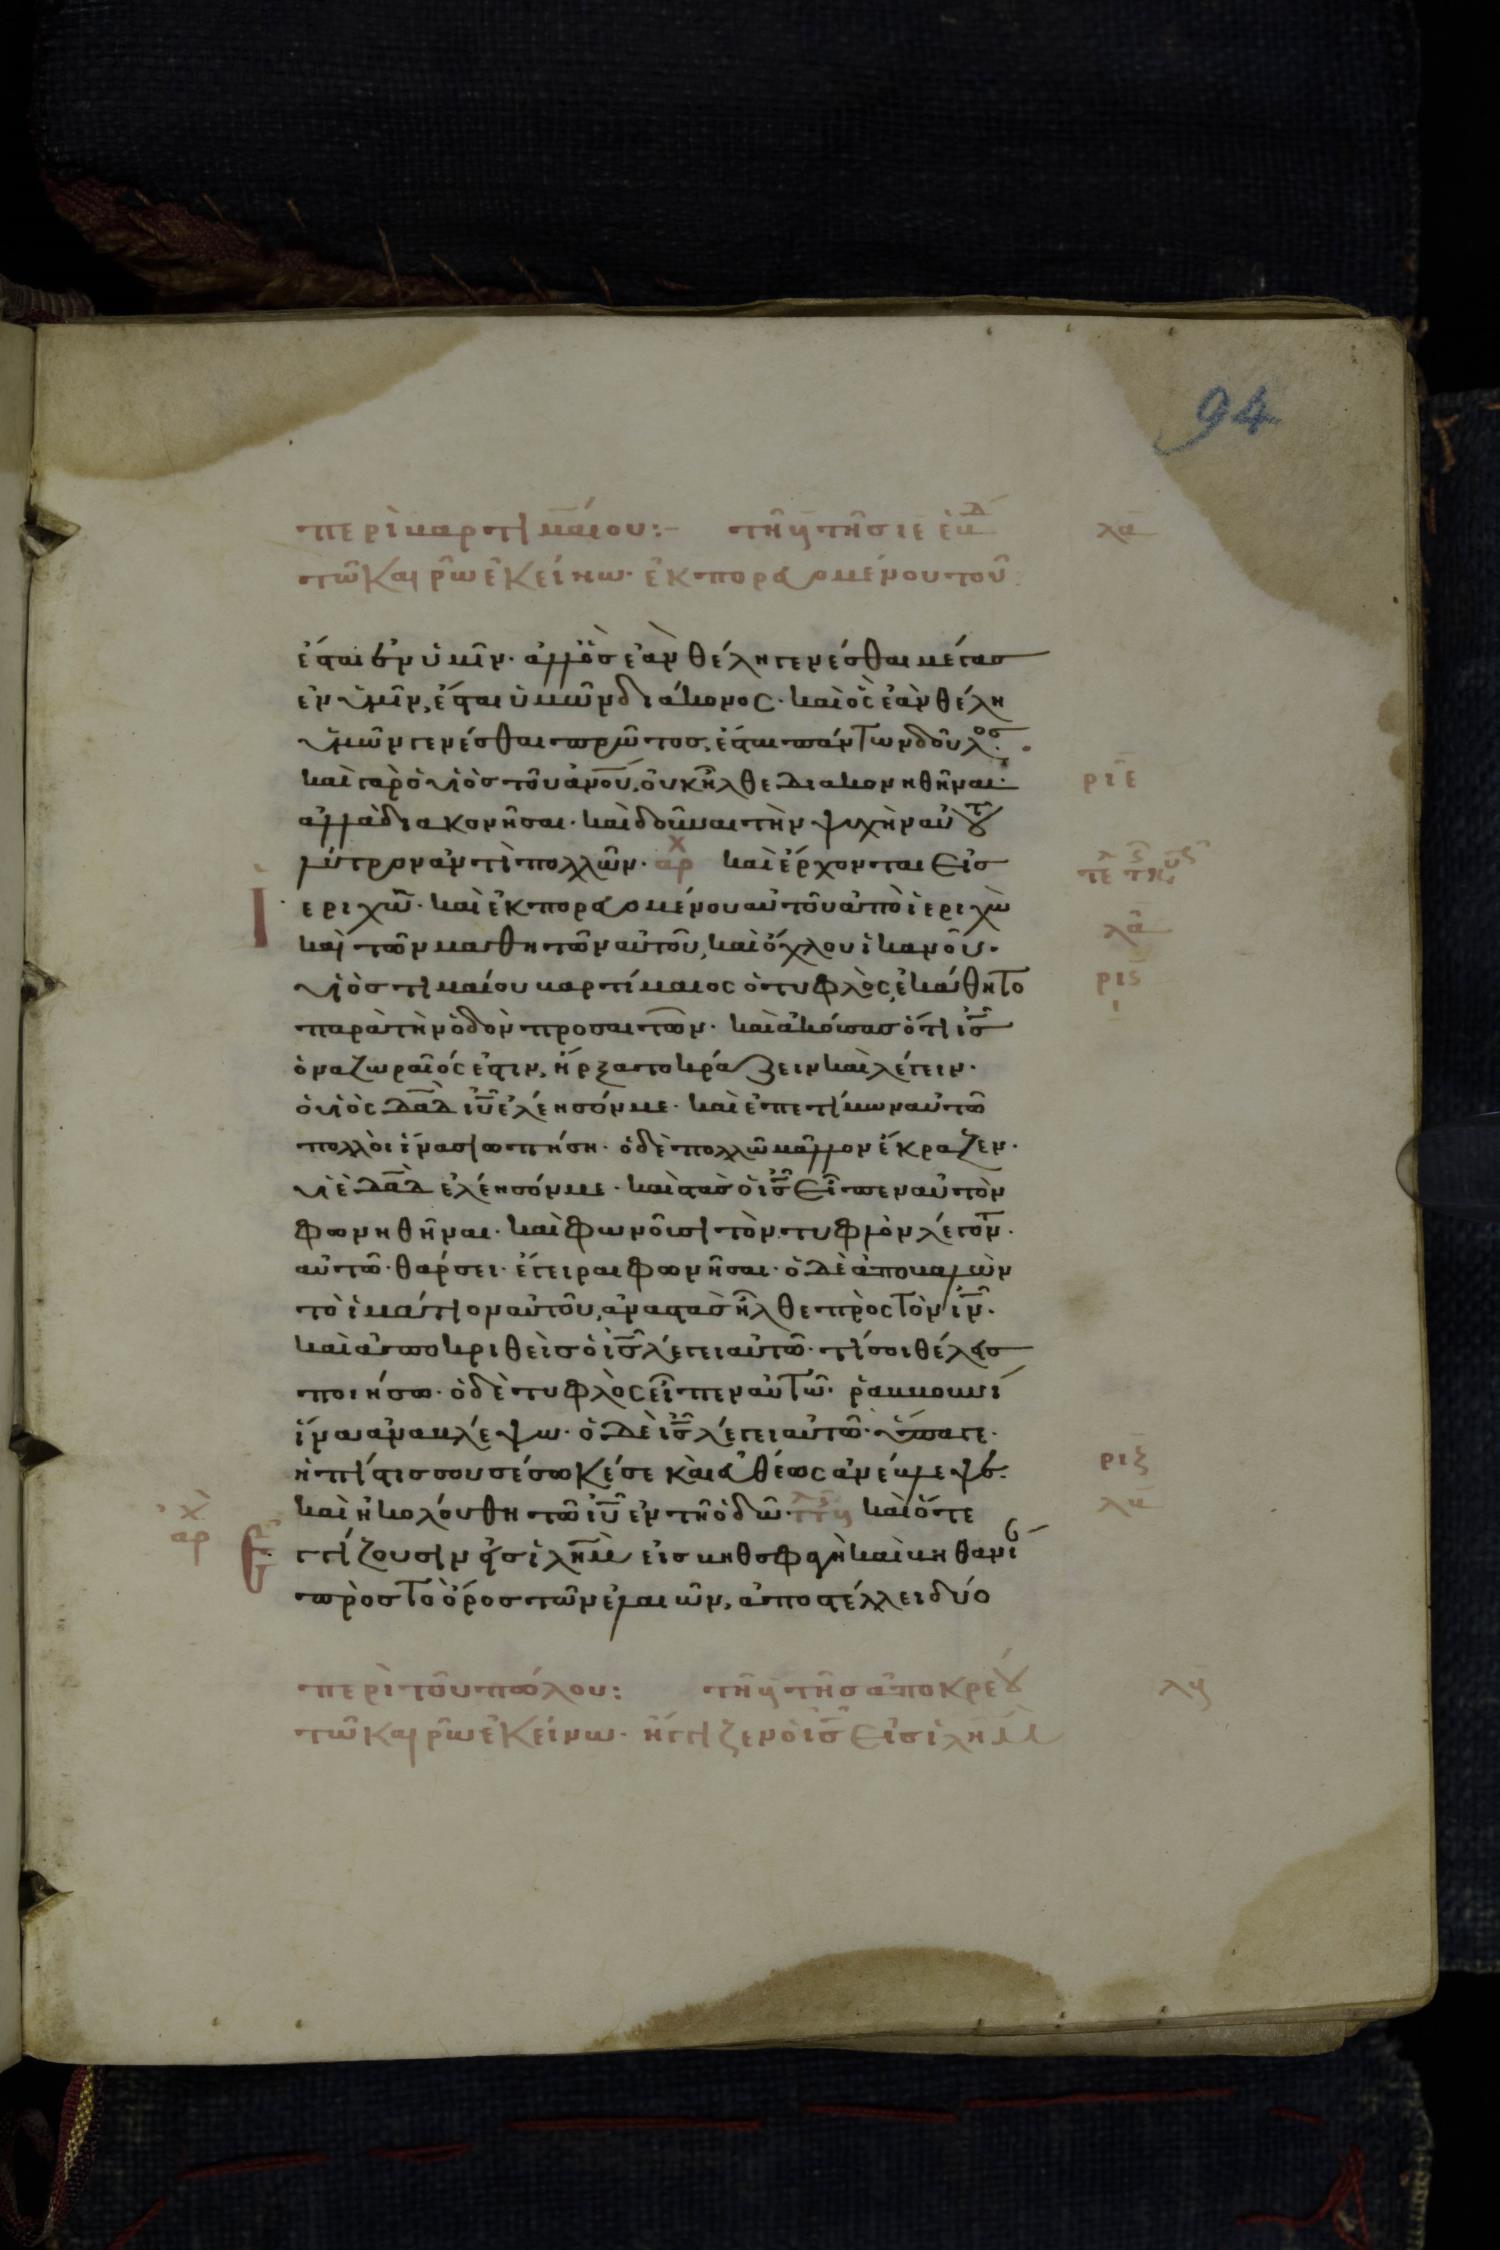 94
περὶ βαρτιμαίου:– τῆ γ τῆς ιε ἑβδ λα
τῶ καιρῶ ἐκείνω· ἐκπορευομένου τοῦ
ἔσται ἐν ὑμῖν· ἀλλ' ὃς ἐὰν θέλη γενέσθαι μέγας
ἐν ὑμῖν, ἔσται ὑμῶν διάκονος· καὶ ὃς ἐὰν θέλη
ὑμῶν γενέσθαι πρῶτος, ἔσται πάντων δοῦλος·
καὶ γὰρ ὁ υἱὸς τοῦ ἀνου, οὐκ ἦλθε διακονηθῆναι· ριε
ἀλλὰ διακονῆσαι· καὶ δοῦναι τὴν ψυχὴν αὐτοῦ
λύτρον ἀντὶ πολλῶν· αρχ καὶ ἔρχονται εἰς
εριχῶ· καὶ ἐκπορευομένου αὐτοῦ ἀπὸ ἱεριχὼ λα
καὶ τῶν μαθητῶν αὐτοῦ, καὶ ὄχλου ἱκανοῦ·
υἱὸς τιμαίου βαρτίμαιος ὁ τυφλὸς, ἐκάθητο ρις
παρὰ τὴν ὁδὸν προσαιτῶν· καὶ ἀκούσας ὅτι ις
ὁ ναζωραῖός ἐστιν, ἤρξατο κράζειν καὶ λέγειν·
ὁ υἱὸς δαδ ιυ ἐλέησόν με· καὶ ἐπετίμων αὐτῶ
πολλοὶ ἵνα σιωπήση· ὁ δὲ πολλῶ μᾶλλον ἔκραζεν·
υἱὲ δαδ ἐλέησόν με· καὶ στὰς ὁ ις εἶπεν αὐτὸν
φωνηθῆναι· καὶ φωνοῦσι τὸν τυφλὸν λέγοντ·
αὐτῶ· θάρσει· ἔγειραι φωνῆσαι· ὁ δὲ ἀποβαλὼν
τὸ ἱμάτιον αὐτοῦ, ἀναστὰς ἦλθε πρὸς τὸν ιν·
καὶ ἀποκριθεὶς ὁ ις λέγει αὐτῶ· τί σοι θέλεις
ποιήσω· ὁ δὲ τυφλὸς εἶπεν αὐτῶ· ῥαββουνί
ἵνα ἀναβλέψω· ὁ δὲ ις λέγει αὐτῶ· ὕπαγε·
ἡ πίστις σου σέσωκέ σε καὶ εὐθέως ἀνέβλεψε· ριζ
καὶ ἠκολούθη τῶ ιυ ἐν τῆ ὁδῶ· καὶ ὅτε λβ
αρχ ἐγγίζουσιν εἰς ιλημ εἰς βηθσφαγὴ καὶ βηθανί
πρὸς τὸ ὄρος τῶν ἐλαιῶν, ἀποστέλλει δύο
περὶ τοῦ πώλου: τῆ γ τῆς ἀπόκρεου λγ
τῶ καιρῶ ἐκείνω· ἤγγιζεν ὁ ις εἰς ιλημ